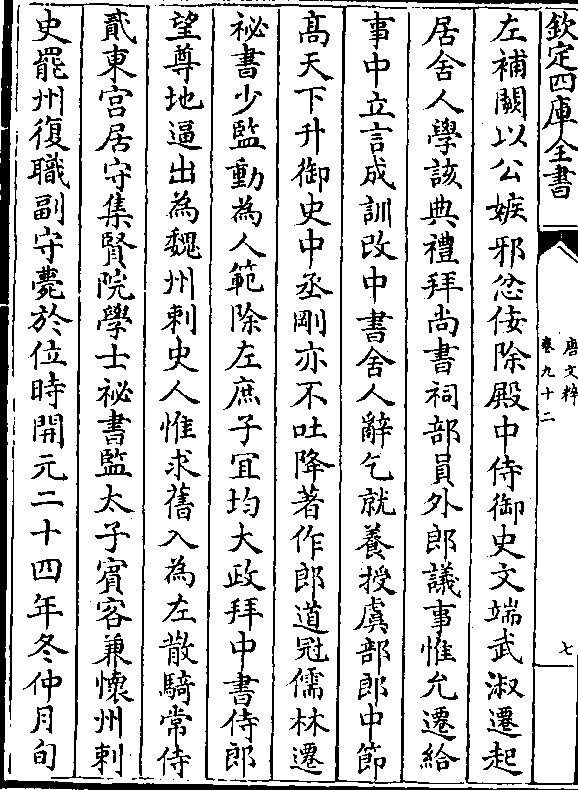 欽定四庫全書
唐文粹
卷九十二
七
左補闕以公嫉邪忿佞除殿中侍御史文端武淑遷起
居舍人學該典禮拜尚書祠部員外郎議事惟允遷給
事中立言成訓改中書舍人辭乞就養授虞部郎中節
高天下升御史中丞剛亦不吐降著作郎道冠儒林遷
祕書少監動為人範除左庶子宜均大政拜中書侍郎
望尊地逼出為魏州刺史人惟求舊入為左散騎常侍
貳東宮居守集賢院學士祕書監太子賓客兼懷州刺
史罷州復職副守薨於位時開元二十四年冬仲月旬